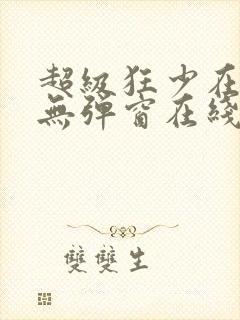 超級狂少在
無彈窗在綫
雙雙生